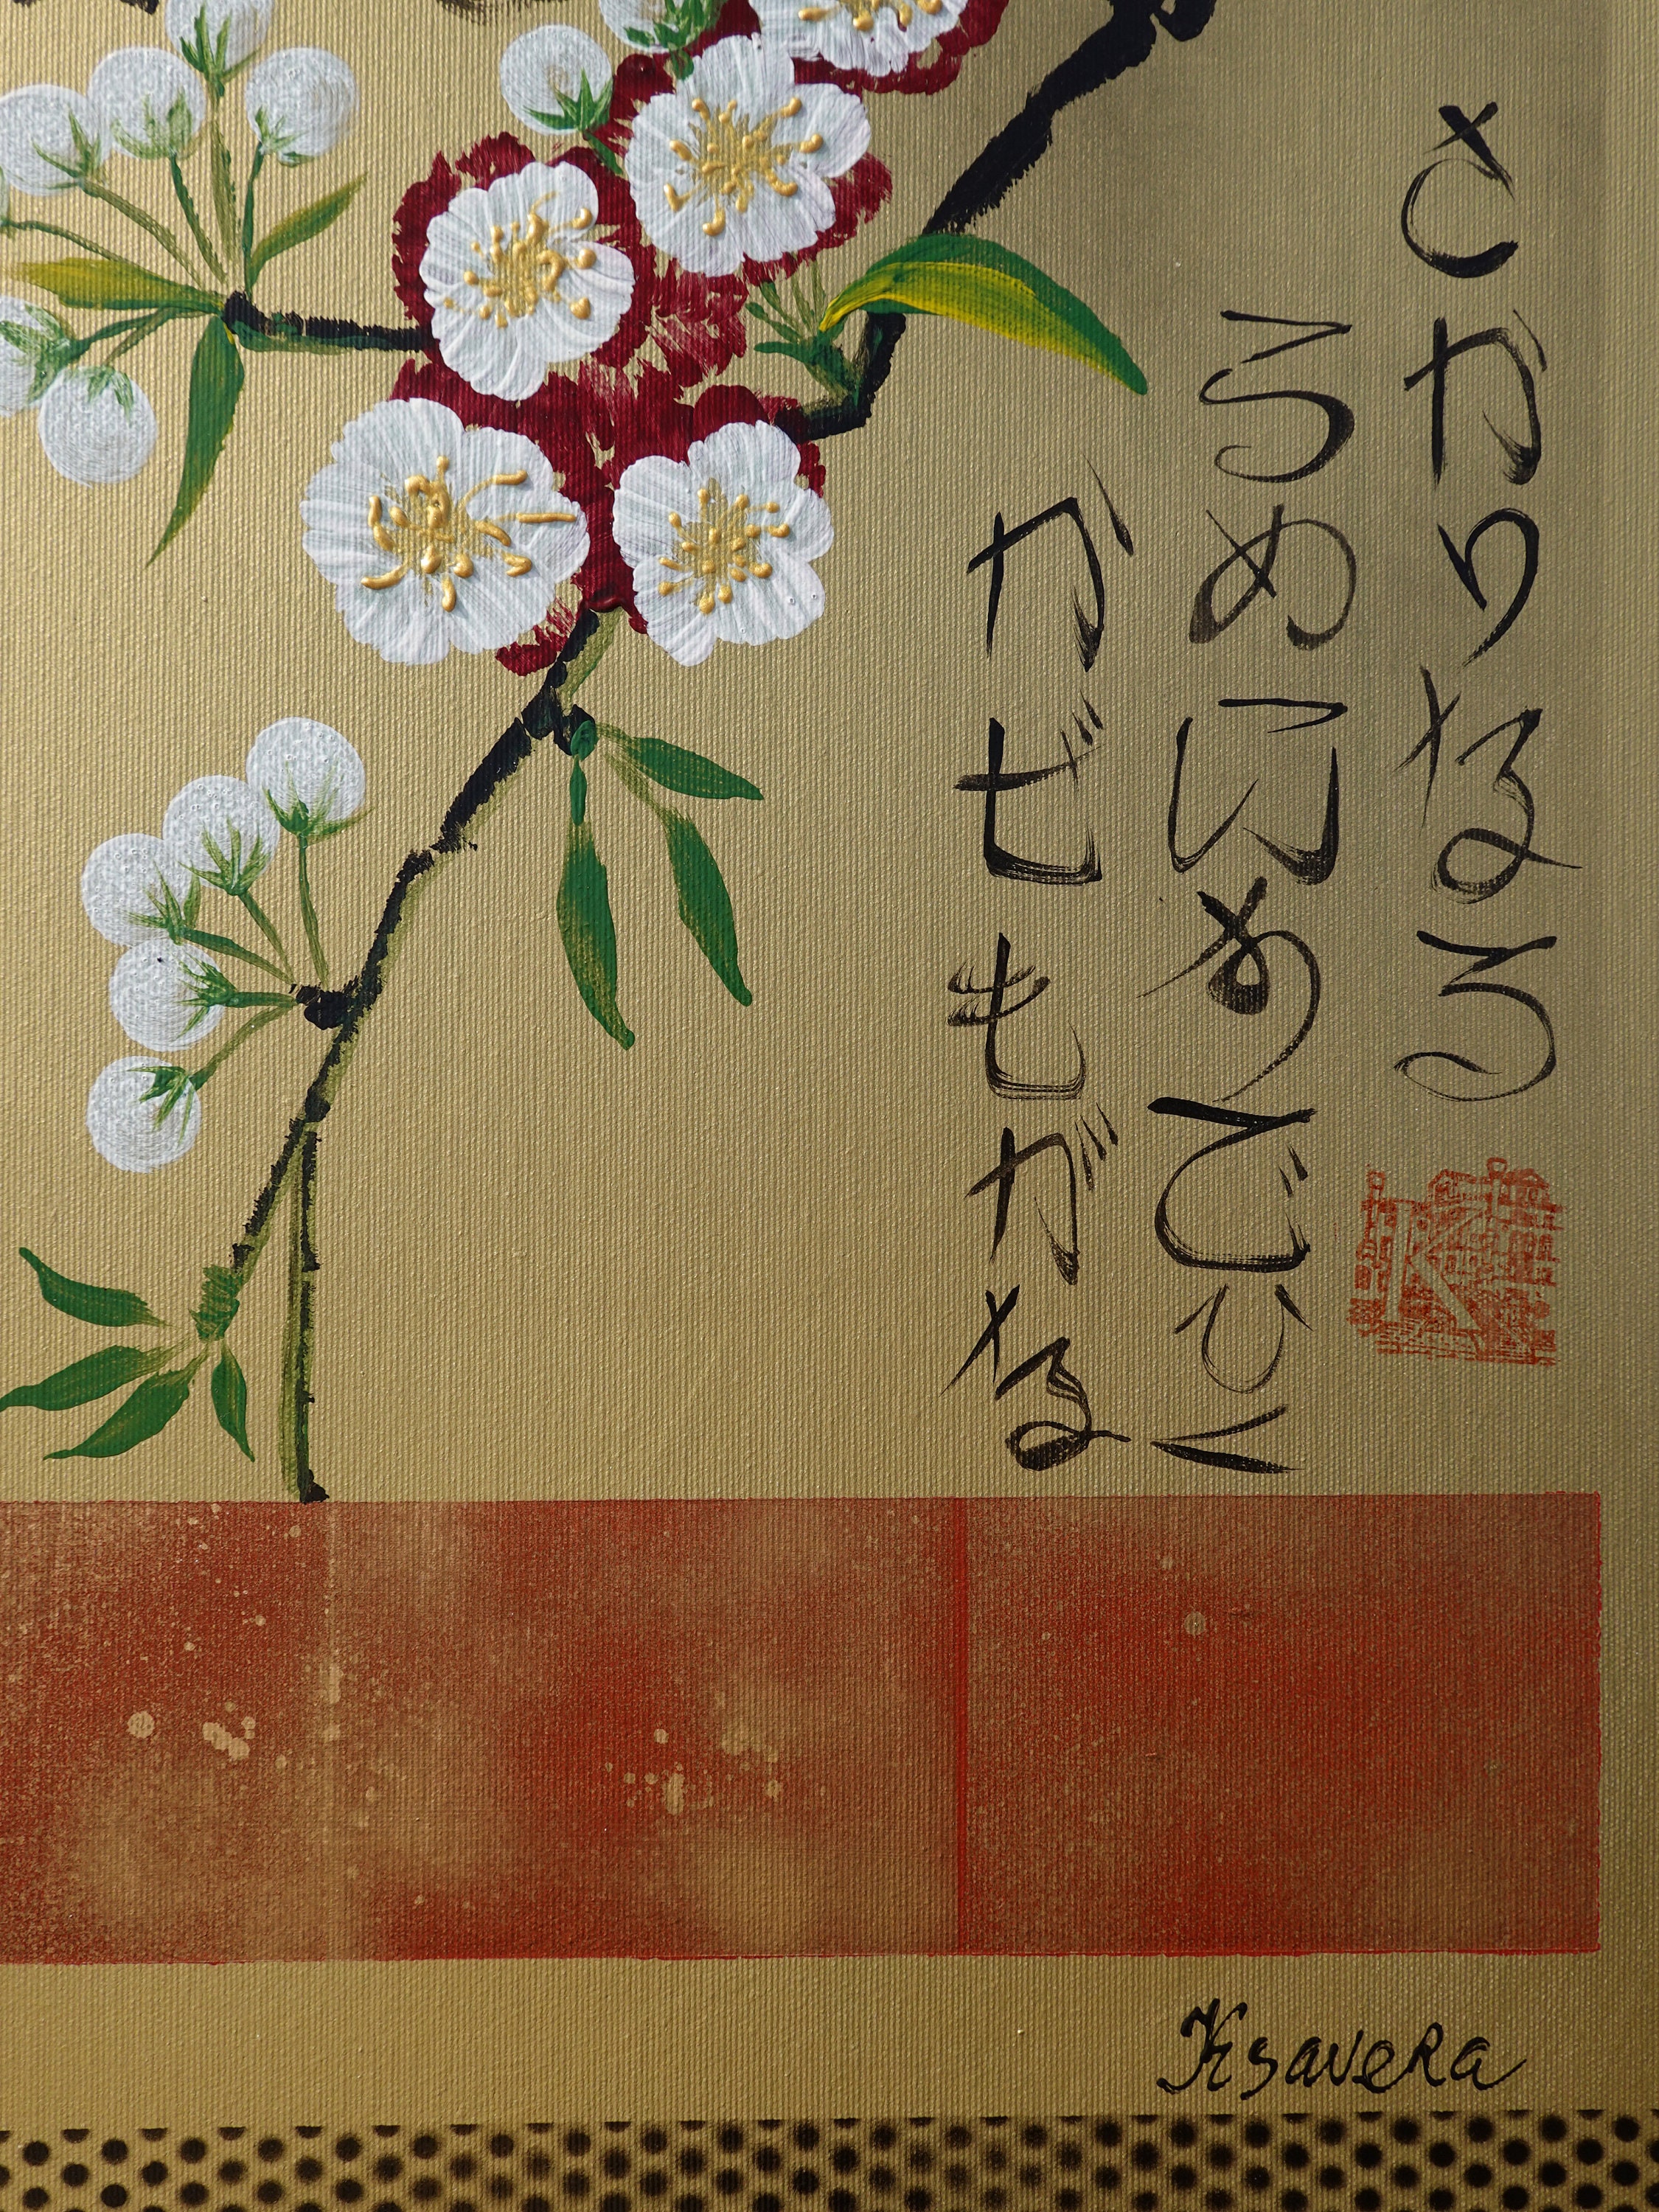 さかりなる
うめにすでひく
かぜもがな
K
Ksavera